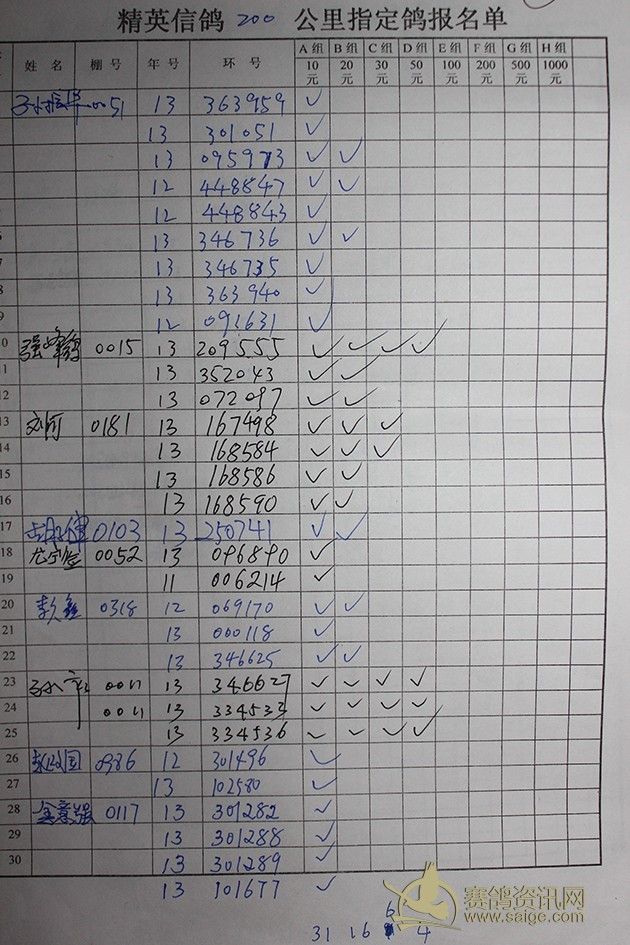 精英信鸽 200 公里指定鸽报名单
姓名 棚号 年号 环号 A组 B组 C组 D组 E组 F组 G组 H组
10元 20元 30元 50元 100元 200元 500元 1000元
0051 13 363959 ✓
13 301051 ✓
13 095973 ✓ ✓
12 448847 ✓ ✓
12 448843 ✓
13 346736 ✓ ✓
7 13 346735 ✓
8 13 363940 ✓
9 12 091631 ✓
0 0015 13 209555 ✓ ✓ ✓ ✓
1 13 352043 ✓ ✓
12 13 072097 ✓ ✓
13 0181 13 167498 ✓ ✓ ✓
14 13 168584 ✓ ✓ ✓
15 13 168586 ✓ ✓
16 13 168590 ✓ ✓
17 0103 13 250741 ✓ ✓
18 0052 13 096890 ✓
19 11 006214 ✓
20 0318 12 069170 ✓ ✓
21 13 000118 ✓
22 13 346625 ✓ ✓
23 13 346627 ✓ ✓ ✓ ✓
24 13 334533 ✓ ✓ ✓ ✓
25 13 334536 ✓ ✓ ✓ ✓
26 0986 12 301496 ✓
27 13 102580 ✓
28 0117 13 301282 ✓
29 13 301288 ✓
30 13 301289 ✓
13 101677 ✓
31 16 6 4
赛鸽资讯网
www.saige.com